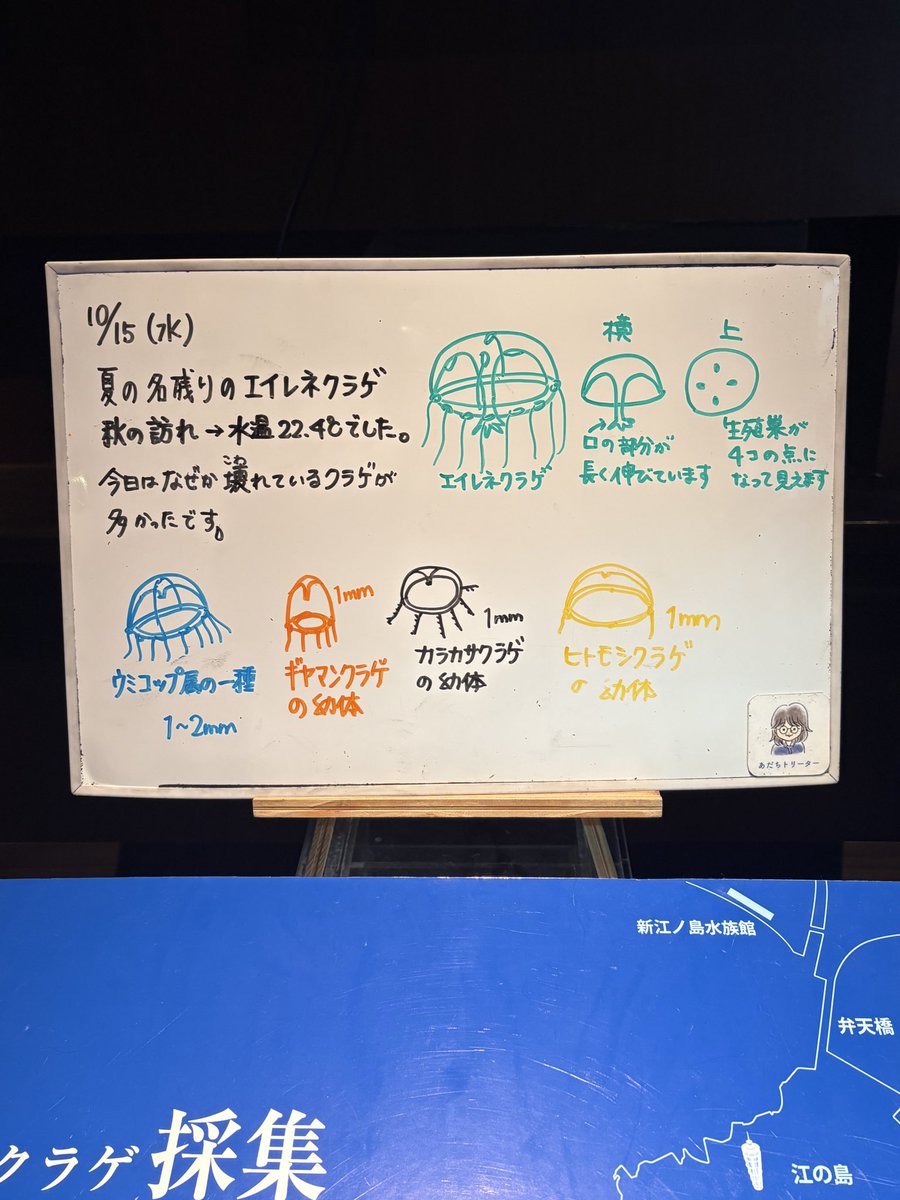 10/15(水)
夏の名残りのエイレネクラゲ
秋の訪れ→水温22.4℃でした。
こわ
今日はなぜか壊れているクラゲが
多かったです。
エイレネクラゲ
横
→
口の部分が
長く伸びています
上
生殖巣が
4コの点に
なって見えます
ウミコップ属の一種
1~2mm
1mm
ギヤマンクラゲ
の幼体
1mm
カラカサクラゲ
の幼体
1mm
ヒトモシクラゲ
の幼体
あだちトリーター
新江ノ島水族館
弁天橋
クラゲ採集
江の島